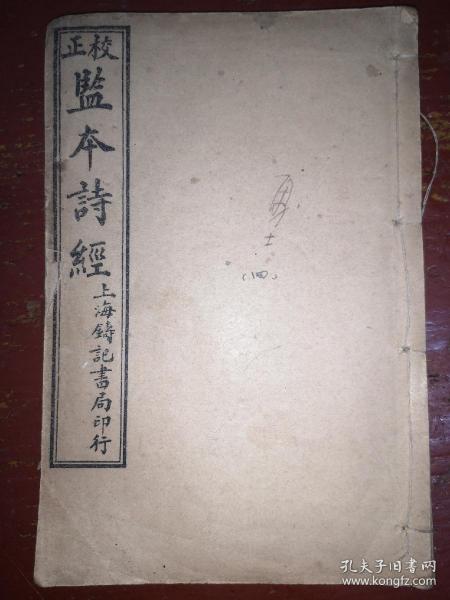 校正
監本詩經
上海鑄記書局印行
士
(四)
孔夫子旧书网
www.kongfz.com